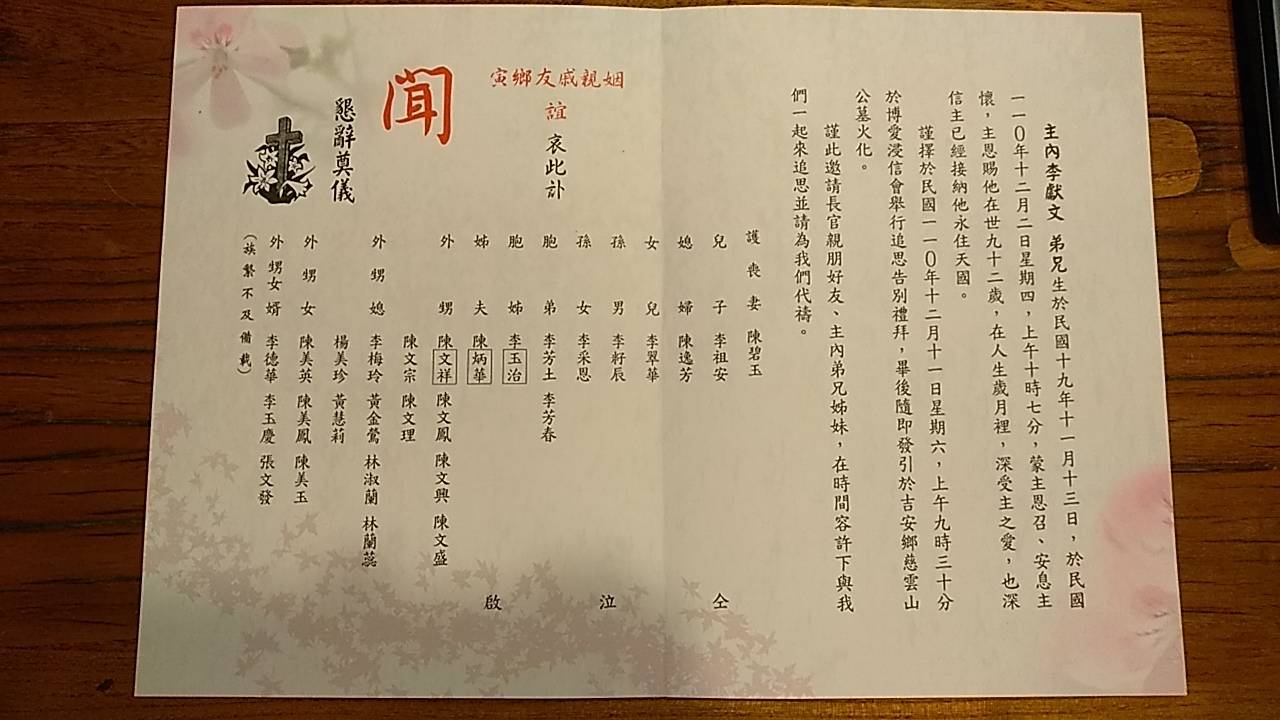 主內李獻文 弟兄生於民國十九年十一月十三日，於民國
一一０年十二月二日星期四，上午十時七分，蒙主恩召、安息主
懷，主恩賜他在世九十二歲，在人生歲月裡，深受主之愛，也深
信主已經接納他永住天國。
謹擇於民國一一０年十二月十一日星期六，上午九時三十分
於博愛浸信會舉行追思告別禮拜，畢後隨即發引於吉安鄉慈雲山
公墓火化。
謹此邀請長官親朋好友、主內弟兄姊妹，在時間容許下與我
們一起來追思並請為我們代禱。
護喪妻 陳碧玉
兒子 李祖安
媳婦 陳逸芳
女兒 李翠華
孫男 李籽辰
孫女 李采恩
胞弟 李芳土 李芳春
胞姊 李玉治
姊夫 陳炳華
外甥 陳文祥 陳文鳳 陳文興 陳文盛
陳文宗 陳文理
外甥媳 李梅玲 黃金鶯 林淑蘭 林蘭蕊
楊美珍 黃慧莉
外甥女 陳美英 陳美鳳 陳美玉
外甥女婿 李德華 李玉慶 張文發
（族繁不及備載）
仝泣啟
寅鄉友戚親姻
誼哀此訃
聞
懇辭奠儀